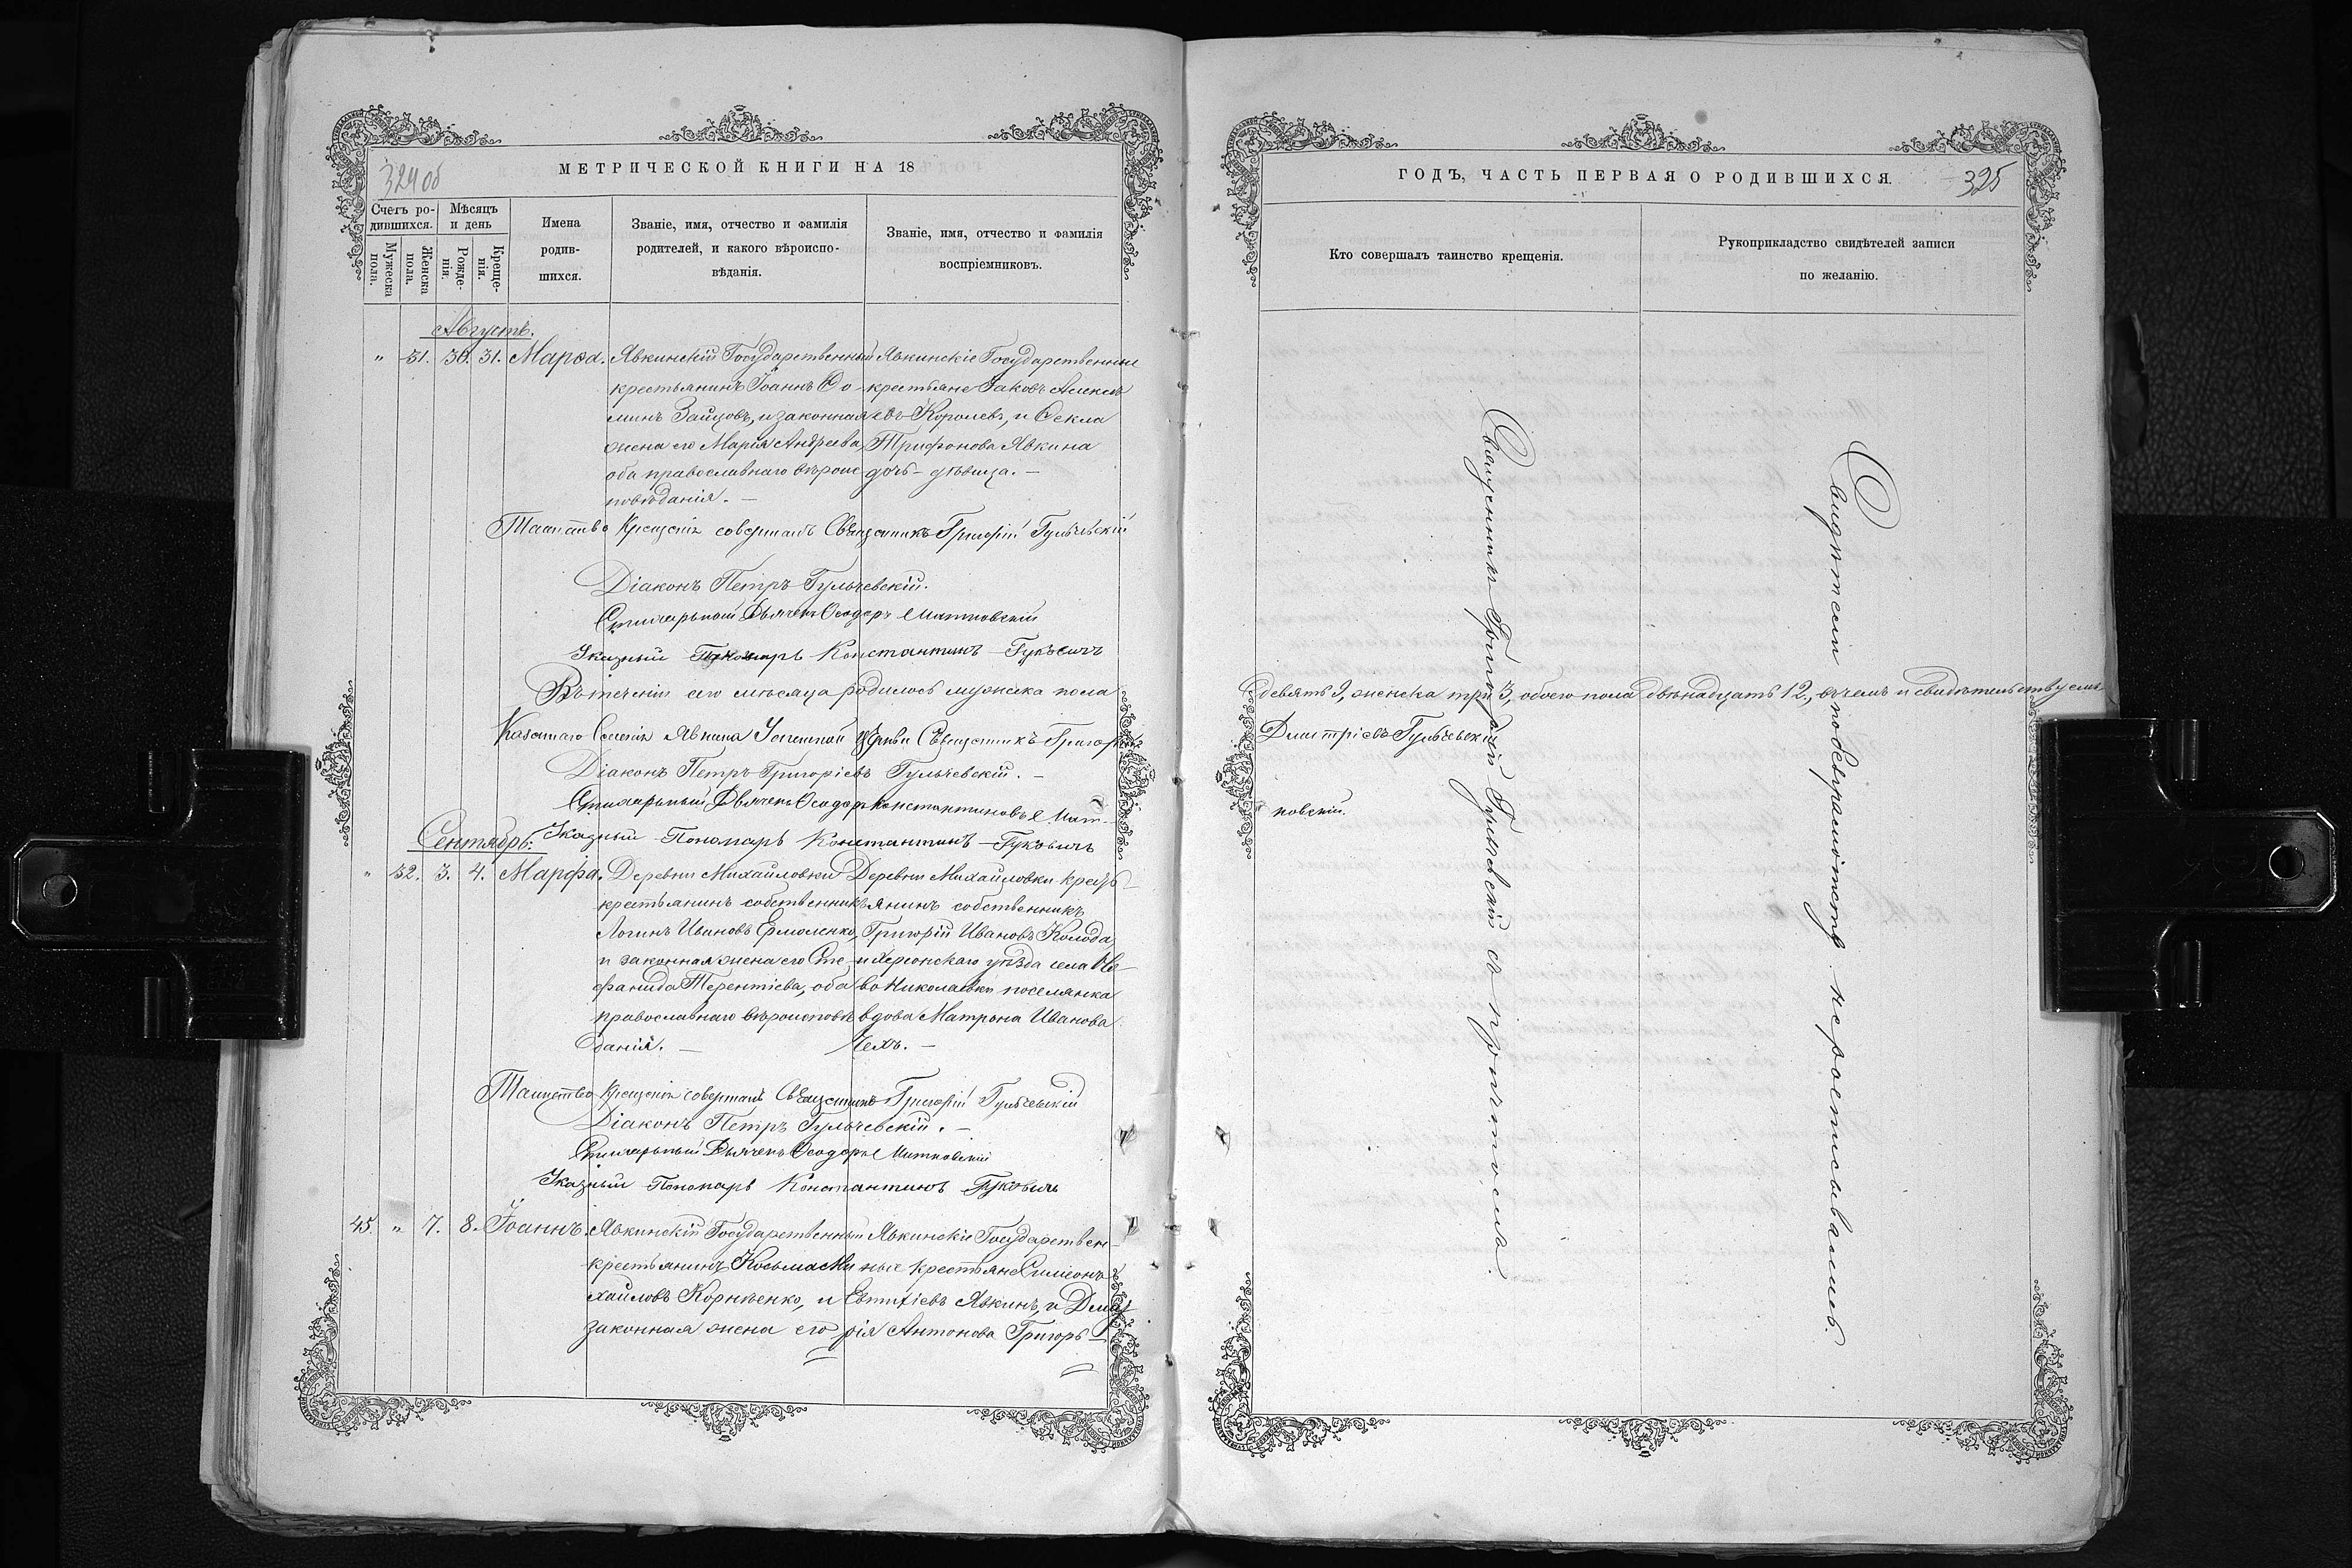 324 об
МЕТРИЧЕСКОЙ КНИГИ НА 18
Счетъ ро-
дившихся.
Мѣсяцъ
и день
Мужеска
пола.
Женска
пола.
Рожде-
нія.
Креще-
нія.
Имена
родив-
шихся.
Званіе, имя, отчество и фамилія
родителей, и какого вѣроиспо-
вѣданія.
Званіе, имя, отчество и фамилія
воспріемниковъ.
Августъ.
" 31. 30. 31. Марѳа.
Явкинскій Государственный
крестьянинъ Іоаннъ Ѳо-
минъ Зайцовъ, и законная
жена его Марія Андреева,
оба православнаго вѣроис-
повѣданія. —
Явкинскіе Государственные
крестьяне Іаковъ Алексѣ
евъ Королевъ, и Ѳекла
Трифонова Явкина
дочь - дѣвица. —
Таинство Крещенія совершалъ Священникъ Григорій Гульчевскій
Діаконъ Петръ Гульчевскій.
Стихарьный Дьячекъ Ѳеодоръ
Указный Пономарь Константинъ Гуковичъ
Въ теченіи сего мѣсяца родилось мужеска пола
Казеннаго Селенія Явкина Успенской Церкви Священникъ Григорій
Діаконъ Петръ Григоріевъ Гульчевскій. —
Стихарьный Дьячекъ Ѳеодоръ Константиновъ
Указный Пономарь Константинъ Гуковичъ
Сентябрь:
" 32. 3. 4. Марфа.
Деревни Михайловки
крестьянинъ собственникъ
Логинъ Ивановъ Ермоленко,
и законная жена его Сте-
фанида Терентіева, оба
православнаго вѣроисповѣ
данія. —
Деревни Михайловки кресть-
янинъ собственникъ
Григорій Ивановъ Колода
и Херсонскаго уѣзда села Но-
во Николаевки поселянка
вдова Матрона Иванова
Чехъ. —
Таинство Крещенія совершалъ Священникъ Григорій Гульчевскій
Діаконъ Петръ Гульчевскій. —
Стихарьный Дьячекъ Ѳеодоръ
Указный Пономарь Константинъ Гуковичъ
45. " 7. 8. Іоаннъ.
Явкинскій Государственный
крестьянинъ Косьма Ми
хайловъ Корнѣенко, и
законная жена его
Явкинскіе Государствен-
ные крестьяне Симеонъ
Евтихіевъ Явкинъ, и Дмит
рія Антонова Григорь-
ГОДЪ, ЧАСТЬ ПЕРВАЯ О РОДИВШИХСЯ.
325
Кто совершалъ таинство крещенія.
Рукоприкладство свидѣтелей записи
по желанію.
девять 9, женска три 3, обоего пола двѣнадцать 12, въ чемъ и свидѣтельствуемъ
Дмитріевъ Гульчевскій
новскій.
Священникъ Григорій Гульчевскій съ причтомъ.
Свидѣтели по безграмотству не росписывались.